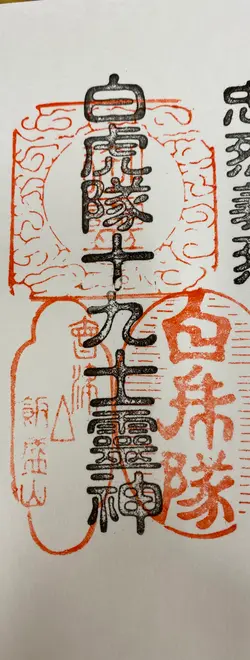 忠烈義
白虎隊十九士靈神
白乕隊
會津
飯盛山